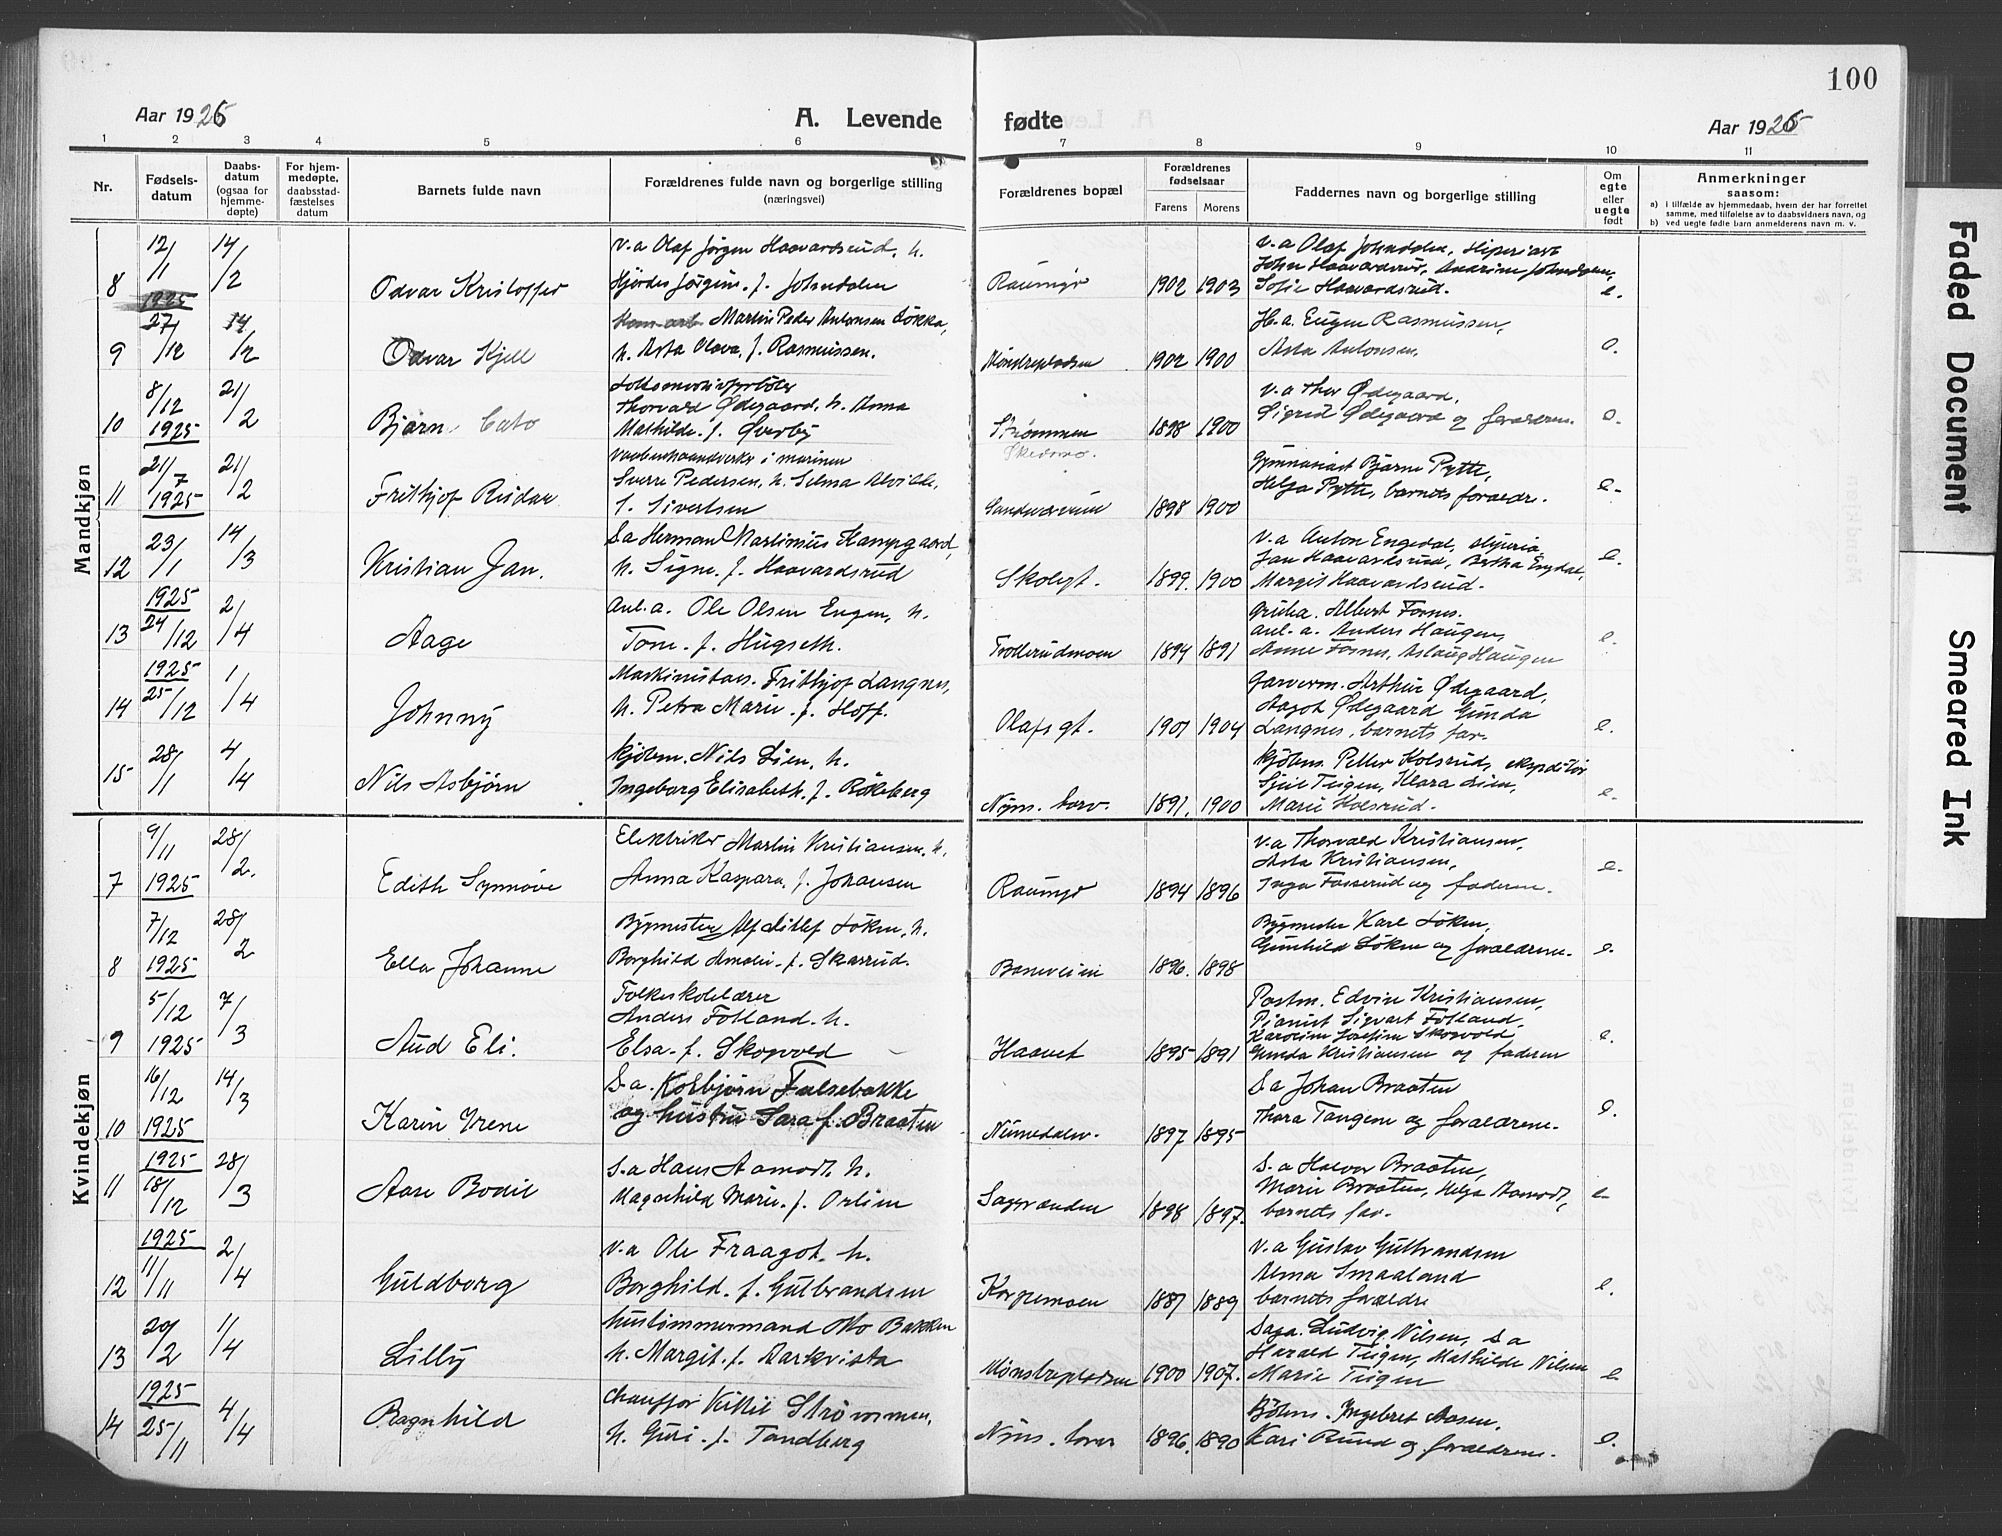 100
Aar 1926
A. Levende
fødte
Aar 1926
1 2 3 4 5 6 7 8 9 10 11
Nr.
Fødsels-
datum
Daabs-
datum
(ogsaa for
hjemme-
døpte)
For hjem-
medøpte,
daabsstad-
fæstelses
datum
Barnets fulde navn
Forældrenes fulde navn og borgerlige stilling
(næringsvei)
Forældrenes bopæl
Forældrenes
fødselsaar
Farens
Morens
Faddernes navn og borgerlige stilling
Om
egte
eller
uegte
født
Anmerkninger
saasom:
a) i tilfælde av hjemmedaab, hvem der har forrettet
samme, med tilføielse av to daabsvidners navn, og
b) ved uegte fødte barn anmelderens navn m. v.
Mandkjøn
8 12/1 14/2 Odvar Kristoffer
v.a Olaf Jørgen Haavardsrud, h.
Hjørdis Jørgine f. Johndalen
1902 1903
v.a Olaf Johndalen,
John Haavardsrud, Andrine Johndalen,
Sofie Haavardsrud. e.
1925
9 27/12 14/2 Odvar Kjell
Martin Peder Antonsen Løkka,
h. Asta Olava, f. Rasmussen.
Mønstrepladsen 1902 1900
H.a. Eugen Rasmussen,
Asta Antonsen, e.
10 8/12 1925 21/2 Bjørn Cato
Thorvald Ødegaard, h. Anna
Mathilde f. Øverby
Strømmen
Skedsmo.
1898 1900
v.a Thor Ødegaard,
Sigrid Ødegaard og forældrene. e.
11 21/7 1925 21/2 Frithjof Reidar
Vaabenhaandverker i marinen
Sverre Pedersen, h. Selma Alvilde,
f. Sivertsen
Sandsværveien 1898 1900
Gymnasiast Bjarne Pytte,
Helga Pytte, barnets forældre. e.
12 23/1 14/3 Kristian Jan.
S.a Herman Martinius Kampgaard,
h. Signe f. Haavardsrud
Skolegt. 1899. 1900
v.a Anton Engedal,
Jan Haavardsrud, Bertha Engdal,
Margit Haavardsrud. e
13 1925 24/12 2/4 Aage
Anl.a. Ole Olsen Engen, h.
Tone f. Hugseth.
Trollerudmoen 1894 1891
Gruba. Albert Fosnes.
anl. a. Anders Haugen,
Anne Fosnes, Aslaug Haugen e.
14 1925 25/12 1/4 Johnny
Frithjof Langnes,
h. Petra Marie f. Hoff.
Olafs gt. 1901 1904
Garverm. Arthur Ødegaard,
Aagot Ødegaard Gunda
Langnes, barnets far. e.
15 28/1 4/4 Nils Asbjørn
Kjøbm. Nils Lien, h.
Ingeborg Elisabeth f. Røkeberg
Nym. torv. 1891. 1900
Kjøbm. Petter Kolsrud, ekspeditør
Teigen, Klara Lien,
Marie Kolsrud. e.
Kvindekjøn
7 9/11 1925 28/2. Edith Synnøve
Elektriker Martin Kristiansen, h.
Anna Kaspara, f. Johansen
1894 1896
v.a Thorvald Kristiansen,
Asta Kristiansen,
Inga Fosserud og faderen. e.
8 7/12 1925 28/2 Ella Johanne
Bygmester Alf Ditlef Løken, h.
Borghild Amalie f. Skarrud.
Baneveien 1896. 1898
Bygmester Karl Løken,
Gunhild Løken og forældrene. e.
9 5/12 1925 7/3 Aud Eli.
Folkeskolelærer
Anders Folland. h.
Elsa f. Skogvold
Haavet 1895 1891
Postm. Edvin Kristiansen,
Pianist Sigvart Folland
Karoline Josefine Skogvold
Gunda Kristiansen og faderen e.
10 16/12 1925 14/3 Karin Irene
S.a. Kolbjørn Fulsebakke
og hustru Sara f. Braaten
Numedalsv. 1897 1895
S.a Johan Braaten
Thora Tangene og forældrene. e.
11 1925 18/12 28/3 Aase Bodil
S.a Hans Aamodt, h.
Magnhild Marie f. Orlien
Saggranden 1898 1897.
S.a Halvor Braaten,
Marie Braaten, Helga Aamodt,
barnets far. e
12 1925 11/11 2/4 Guldborg
v.a Ole Fraagot h.
Borghild. f. Gulbrandsen
Korpemoen 1887 1889
v.a Gustav Gulbrandsen
Alma Smaaland
barnets forældre e.
13 20/2 11/4 Lilly
Hustømmermand Otto Bakken
h. Margit f. Aarkvisla
Mønstrepladsen 1900 1907.
Saga. Ludvig Nilsen, S a
Harald Teigen, Mathilde Nilsen
Marie Teigen e
14 1925 25/11 4/4 Ragnhild
Chauffør Kittil Strømmen,
h. Guri f. Tandberg
Nym. torv 1896. 1890
Kjøbm. Ingebret Aasen,
Kari Ruud og forældrene. e.
Faded Document
Smeared Ink